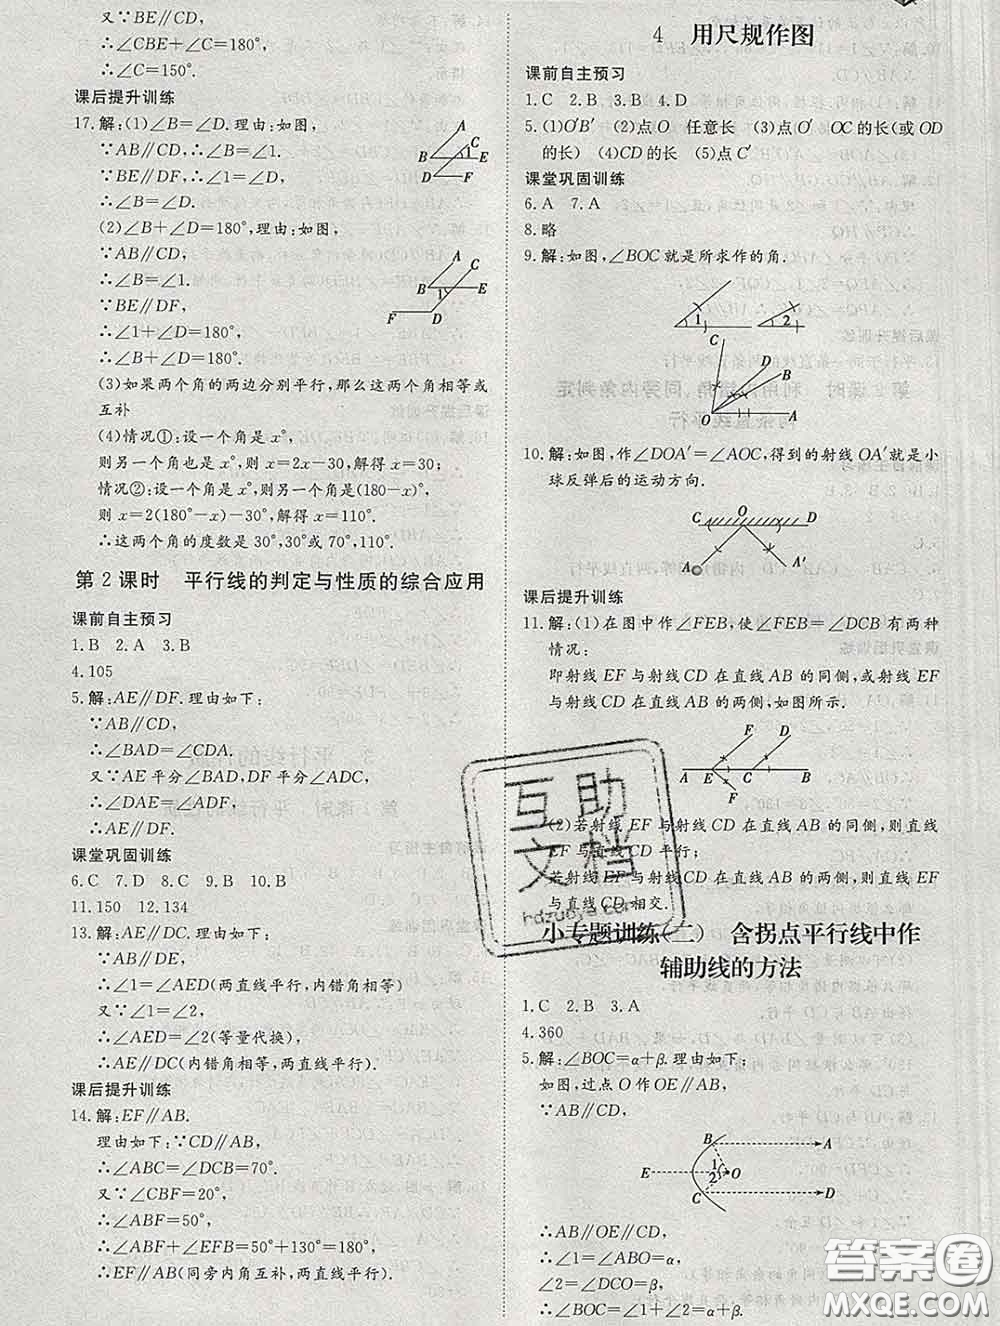 又∵BE∥CD,
∴∠CBE+∠C=180°,
∴∠C=150°.
课后提升训练
17.解:(1)∠B=∠D.理由:如图,
∵AB∥CD,∴∠B=∠1.
∵BE∥DF,∴∠1=∠D,
∴∠B=∠D.
A C
B 1 E
D F
(2)∠B+∠D=180°,理由:如图,
∵AB∥CD,
∴∠B=∠1.
∵BE∥DF,
∴∠1+∠D=180°,
∴∠B+∠D=180°.
A C
B 1 E
F D
(3)如果两个角的两边分别平行,那么这两个角相等或
互补
(4)情况①:设一个角是x°,
则另一个角也是x°,则x=2x-30,解得x=30;
情况②:设一个角是x°,则另一个角是(180-x)°,
则x=2(180°-x)-30°,解得x=110°.
∴这两个角的度数是30°,30°或70°,110°.
第2课时 平行线的判定与性质的综合应用
课前自主预习
1.B 2.A 3.B
4.105
5.解:AE∥DF.理由如下:
∵AB∥CD,
∴∠BAD=∠CDA.
又∵AE平分∠BAD,DF平分∠ADC,
∴∠DAE=∠ADF,
∴AE∥DF.
课堂巩固训练
6.C 7.D 8.C 9.B 10.B
11.150 12.134
13.解:∵AB∥DE,
∴∠1=∠AED(两直线平行,内错角相等)
又∵∠1=∠2,
∴∠AED=∠2(等量代换),
∴AE∥DC(内错角相等,两直线平行).
课后提升训练
14.解:EF∥AB.
理由如下:∵CD∥AB,
∴∠ABC=∠DCB=70°.
又∵∠CBF=20°,
∴∠ABF=50°,
∴∠ABF+∠EFB=50°+130°=180°,
∴EF∥AB(同旁内角互补,两直线平行).
4 用尺规作图
课前自主预习
1.C 2.B 3.B 4.D
5.(1)O′B′ (2)点O 任意长 (3)点O′ OC的长(或OD
的长) (4)CD的长 (5)点C′
课堂巩固训练
6.A 7.A
8.略
9.解:如图,∠BOC就是所求作的角.
1 2
C B
O A
10.解:如图,作∠DOA′=∠AOC,得到的射线OA′就是小
球反弹后的运动方向.
C O D
A A′
课后提升训练
11.解:(1)在图中作∠FEB,使∠FEB=∠DCB有两种
情况:
即射线EF与射线CD在直线AB的同侧,或射线EF
与射线CD在直线AB的两侧,如图所示.
F D
A E C B
F
(2)若射线EF与射线CD在直线AB的同侧,则直线
EF与直线CD平行;
若射线EF与射线CD在直线AB的两侧,则直线EF
与直线CD相交.
小专题训练(二) 含拐点平行线中作
辅助线的方法
1.C 2.B 3.A
4.360
5.解:∠BOC=α+β.理由如下:
如图,过点O作OE∥AB,
∵AB∥CD,
B A
E 1 2 O
C D
∴AB∥OE∥CD,
∴∠1=∠ABO=α,
∠2=∠DCO=β,
∴∠BOC=∠1+∠2=α+β.
互助
文档
hdzuoye.com
答案圈
MXQE.COM